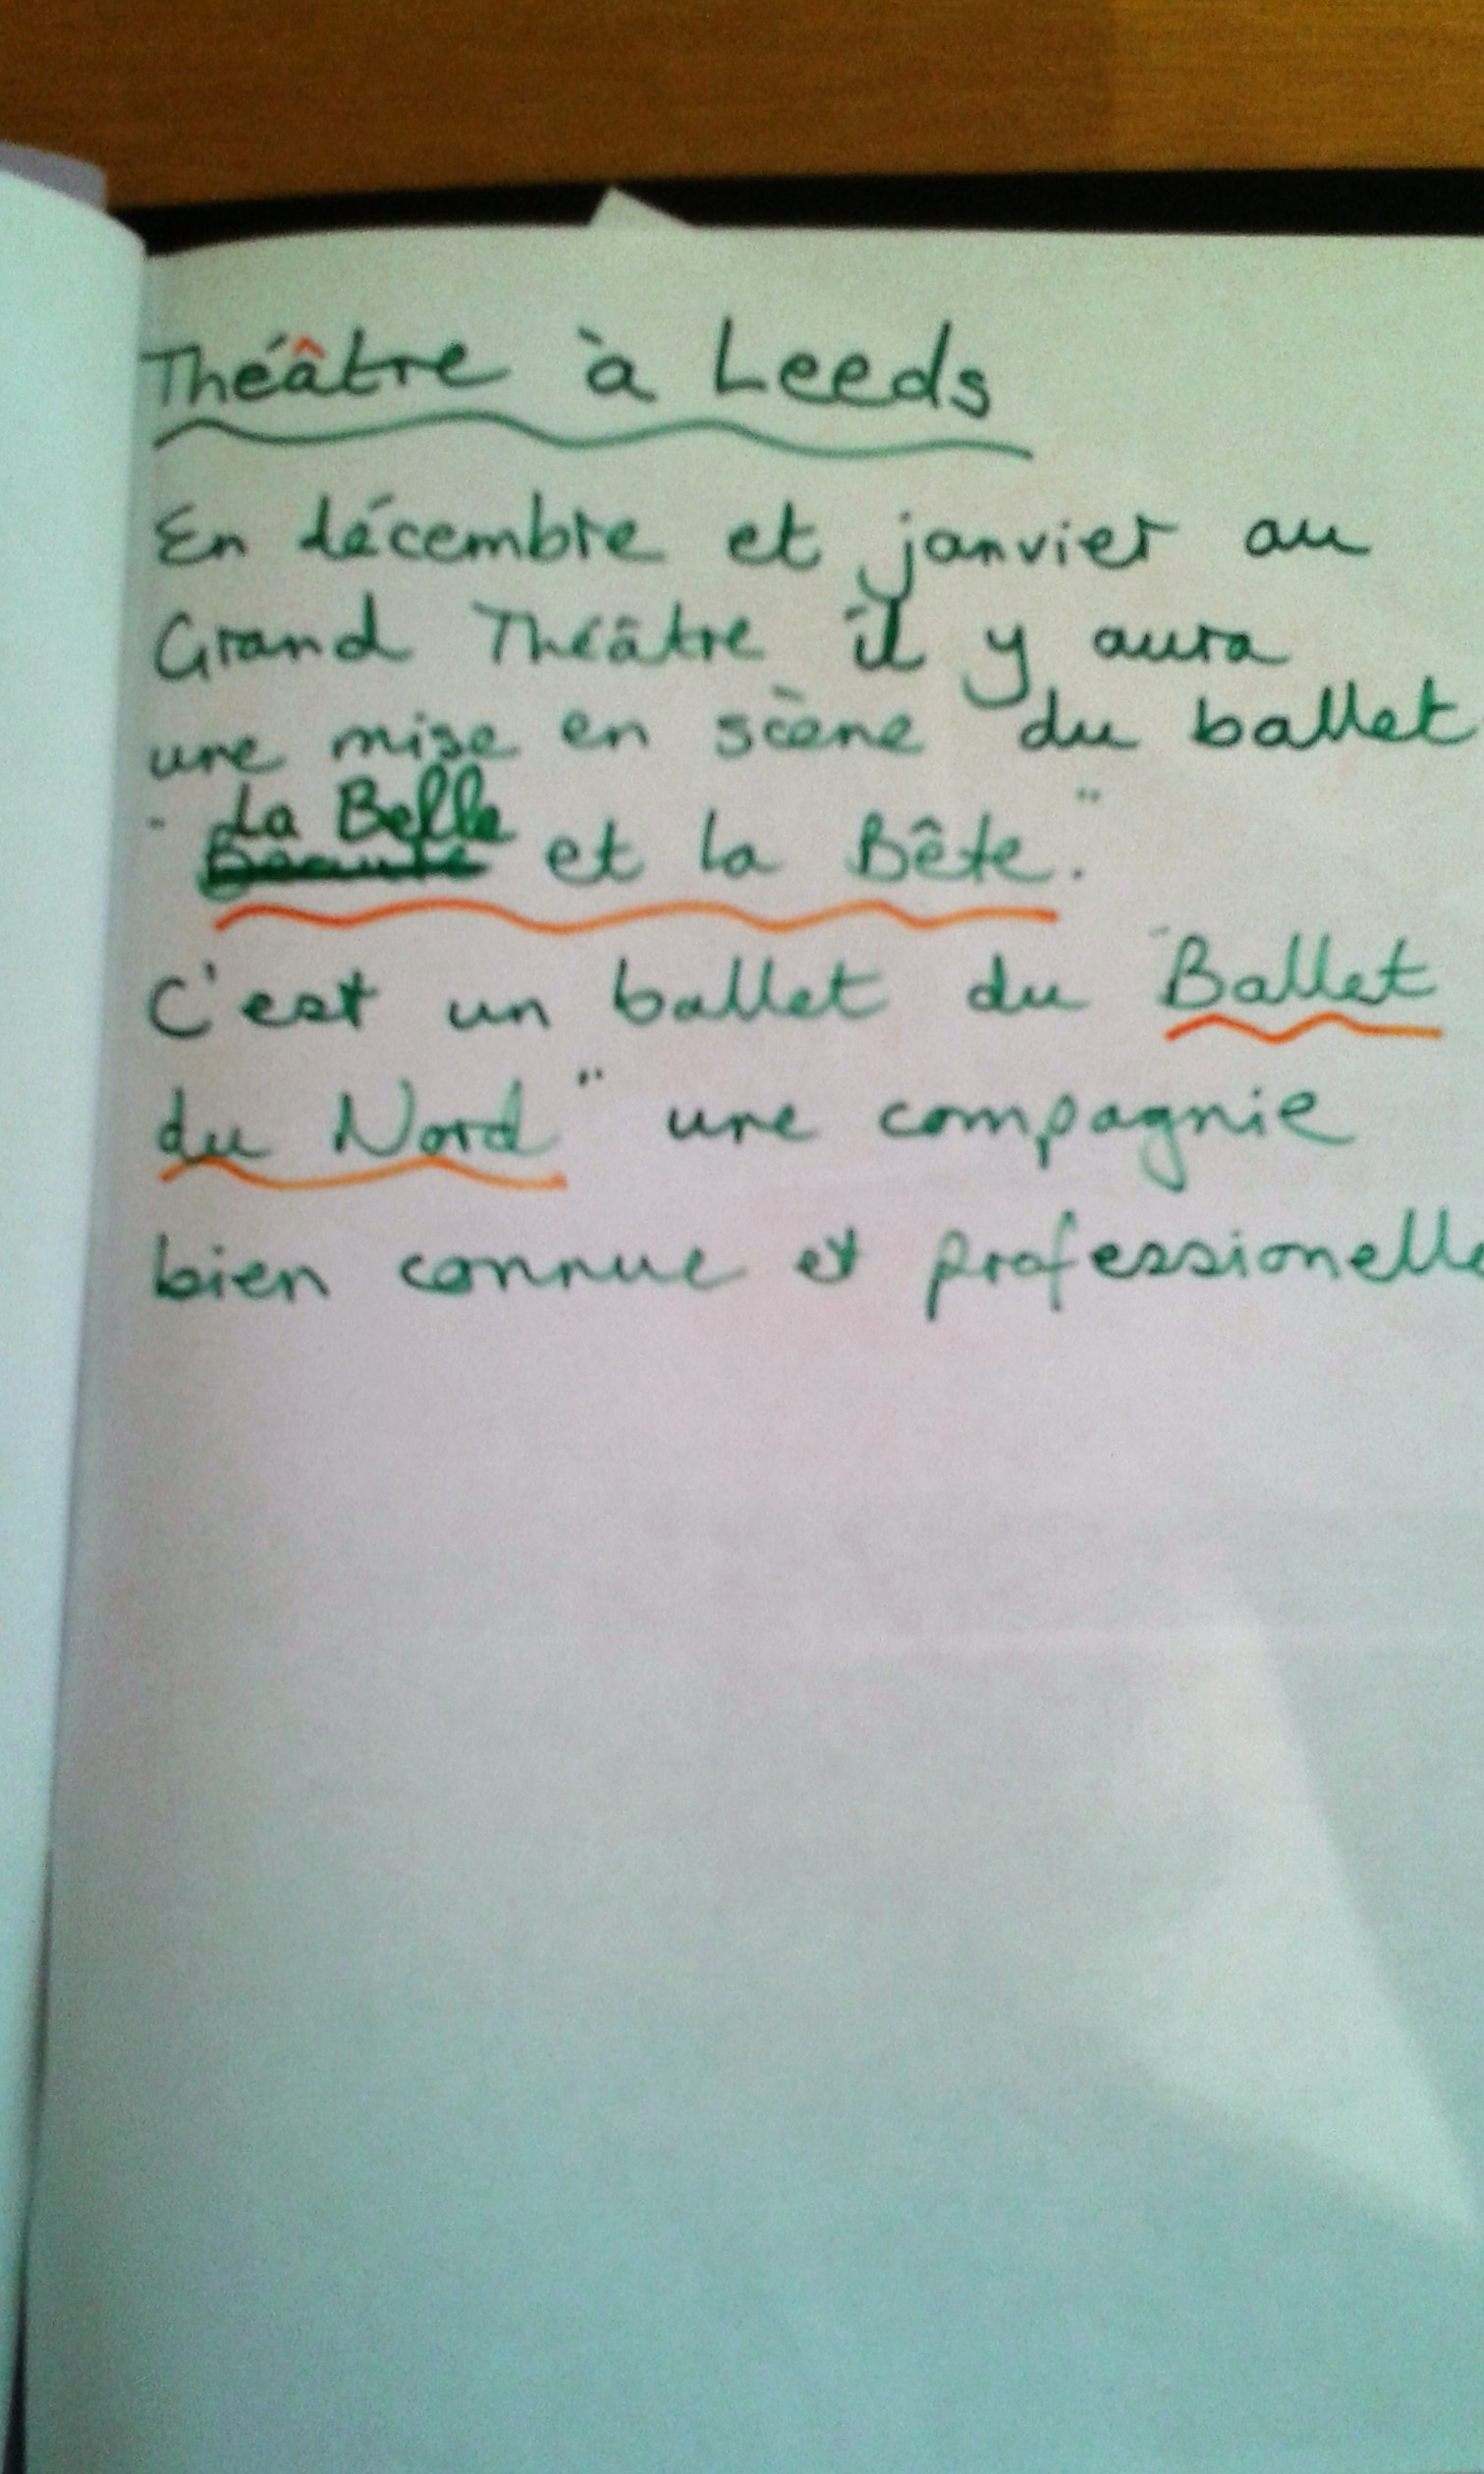 Théâtre à Leeds
En décembre et janvier au
Grand Théâtre il y aura
une mise en scène du ballet
"La Belle et la Bête."
C'est un ballet du "Ballet
du Nord" une compagnie
bien connue et professionelle